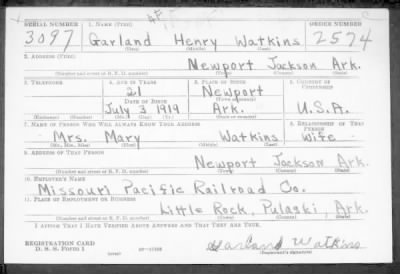 4F
SERIAL NUMBER 1. NAME (Print) ORDER NUMBER
3097 Garland Henry Watkins 2574
(First) (Middle) (Last)
2. ADDRESS (Print)
Newport Jackson Ark.
(Number and street or R. F. D. number) (Town) (County) (State)
3. TELEPHONE 4. AGE IN YEARS 5. PLACE OF BIRTH 6. COUNTRY OF CITIZENSHIP
21 Newport
DATE OF BIRTH (Town or county)
July 3 1919 Ark. U.S.A.
(Exchange) (No.) (Mo.) (Day) (Yr.) (State or country)
7. NAME OF PERSON WHO WILL ALWAYS KNOW YOUR ADDRESS 8. RELATIONSHIP OF THAT PERSON
Mrs. Mary Watkins Wife
(Mr., Mrs., Miss) (First) (Middle) (Last)
9. ADDRESS OF THAT PERSON
Newport Jackson Ark.
(Number and street or R. F. D. number) (Town) (County) (State)
10. EMPLOYER'S NAME
Missouri Pacific Railroad Co.
11. PLACE OF EMPLOYMENT OR BUSINESS
Little Rock, Pulaski, Ark.
(Number and street or R. F. D. number) (Town) (County) (State)
I AFFIRM THAT I HAVE VERIFIED ABOVE ANSWERS AND THAT THEY ARE TRUE.
REGISTRATION CARD
D. S. S. FORM 1
Garland Watkins
(Registrant's signature)